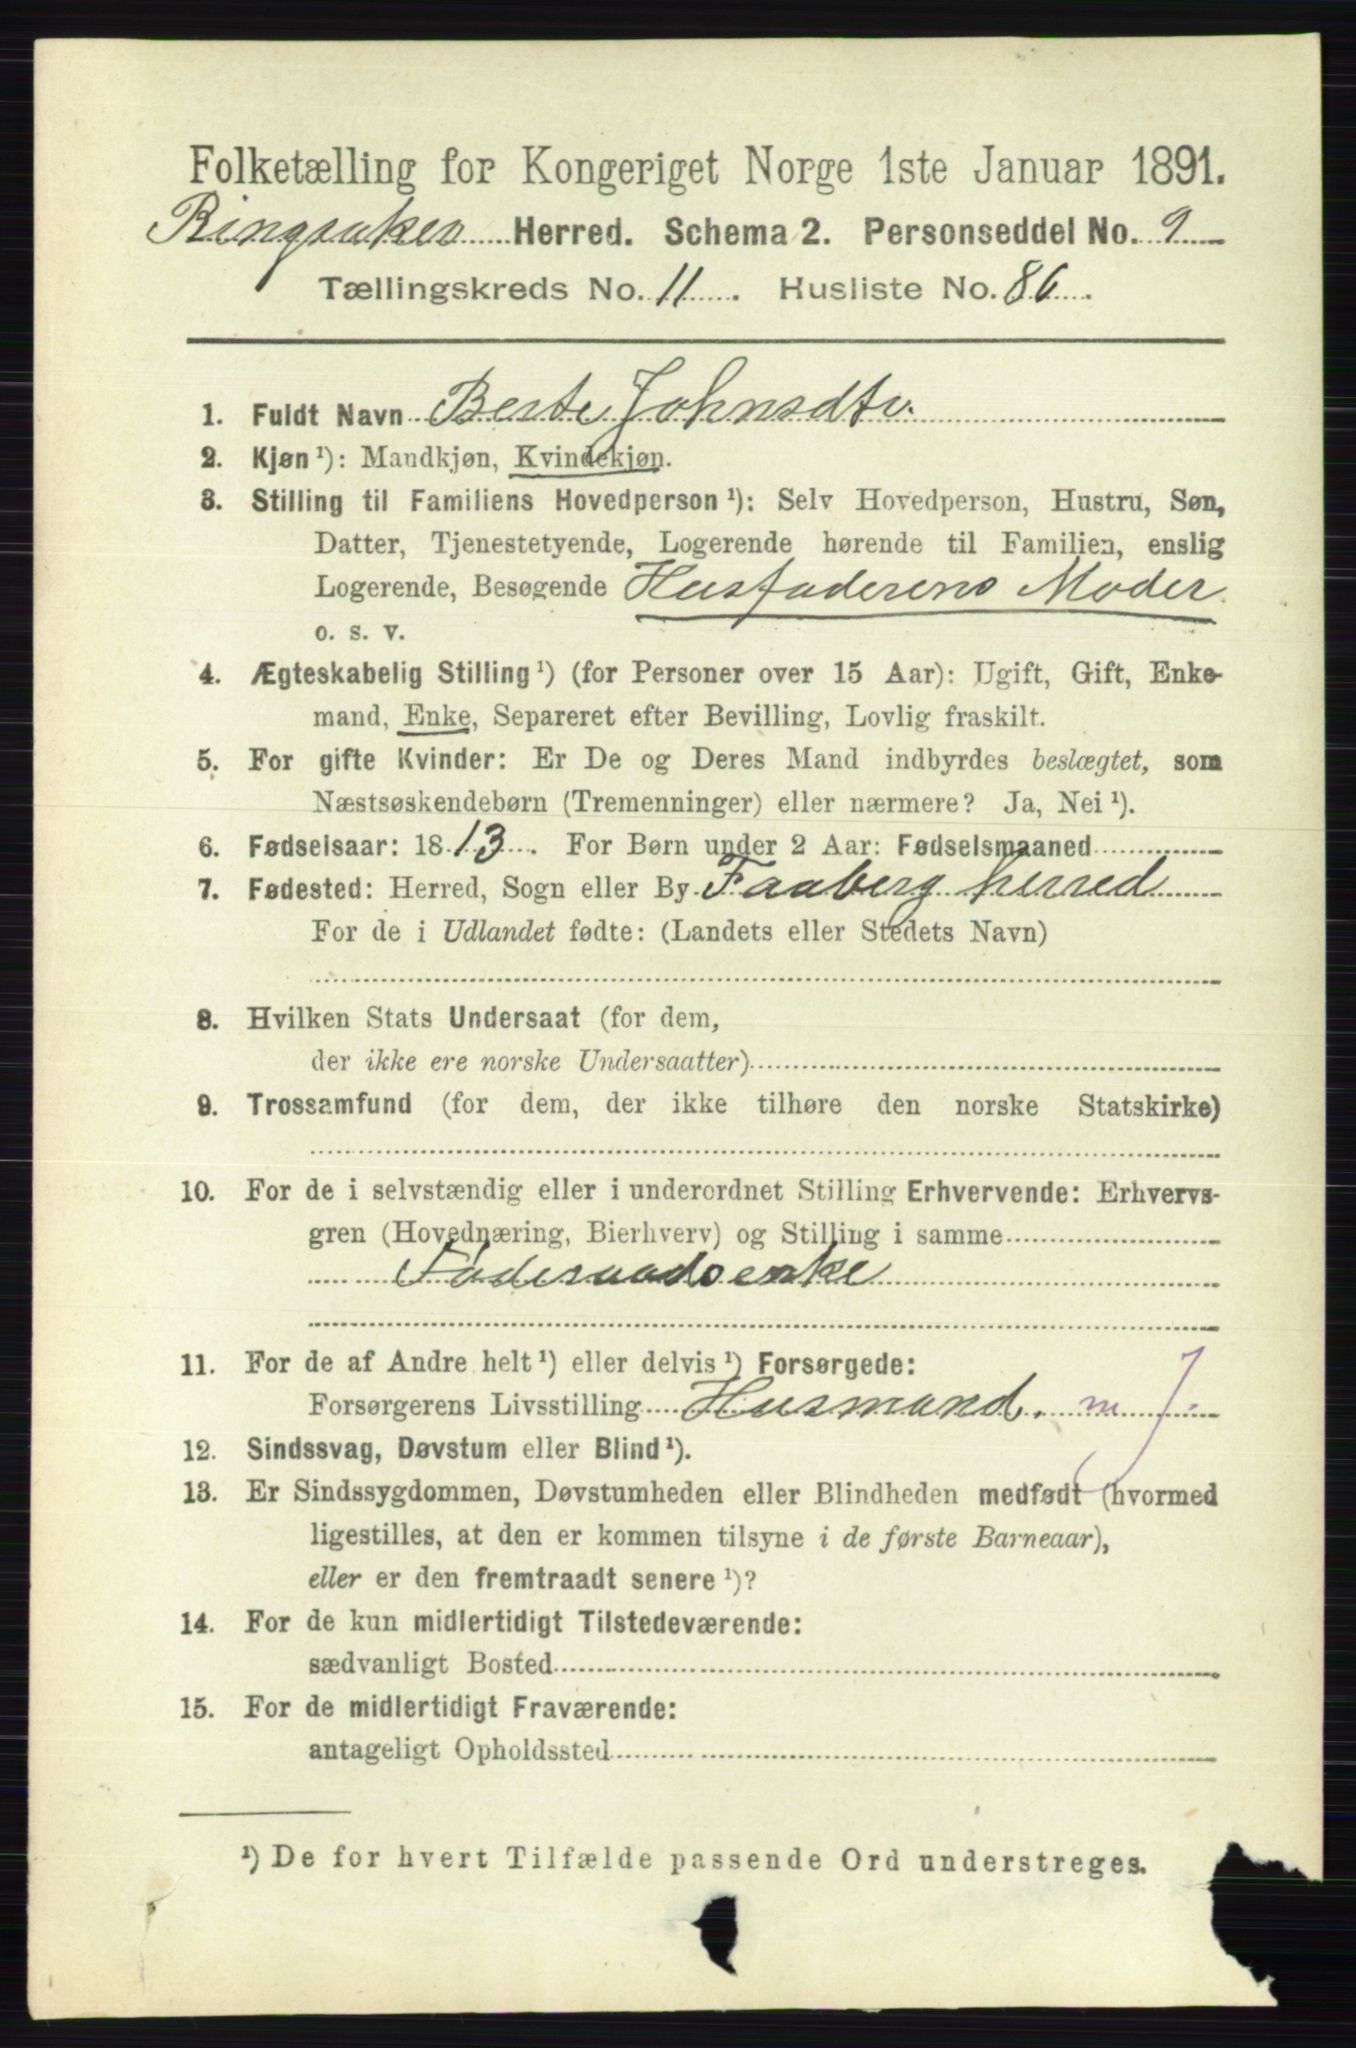 Folketælling for Kongeriget Norge 1ste Januar 1891.
Ringsaker Herred. Schema 2. Personseddel No. 9
Tællingskreds No. 11. Husliste No. 86.
1. Fuldt Navn Berte Johnsdtr.
2. Kjøn ¹): Mandkjøn, Kvindekjøn.
3. Stilling til Familiens Hovedperson ¹): Selv Hovedperson, Hustru, Søn,
Datter, Tjenestetyende, Logerende hørende til Familien, enslig
Logerende, Besøgende Husfaderens Moder.
o. s. v.
4. Ægteskabelig Stilling ¹) (for Personer over 15 Aar): Ugift, Gift, Enke-
mand, Enke, Separeret efter Bevilling, Lovlig fraskilt.
5. For gifte Kvinder: Er De og Deres Mand indbyrdes beslægtet, som
Næstsøskendebørn (Tremenninger) eller nærmere? Ja, Nei ¹).
6. Fødselsaar: 1813. For Børn under 2 Aar: Fødselsmaaned
7. Fødested: Herred, Sogn eller By Faaberg herred
For de i Udlandet fødte: (Landets eller Stedets Navn)
8. Hvilken Stats Undersaat (for dem,
der ikke ere norske Undersaatter)
9. Trossamfund (for dem, der ikke tilhøre den norske Statskirke)
10. For de i selvstændig eller i underordnet Stilling Erhvervende: Erhvervs-
gren (Hovednæring, Bierhverv) og Stilling i samme
Føderaadsenke
11. For de af Andre helt ¹) eller delvis ¹) Forsørgede:
Forsørgerens Livsstilling Husmand. m J.
12. Sindssvag, Døvstum eller Blind ¹).
13. Er Sindssygdommen, Døvstumheden eller Blindheden medfødt (hvormed
ligestilles, at den er kommen tilsyne i de første Barneaar),
eller er den fremtraadt senere ¹)?
14. For de kun midlertidigt Tilstedeværende:
sædvanligt Bosted
15. For de midlertidigt Fraværende:
antageligt Opholdssted
¹) De for hvert Tilfælde passende Ord understreges.